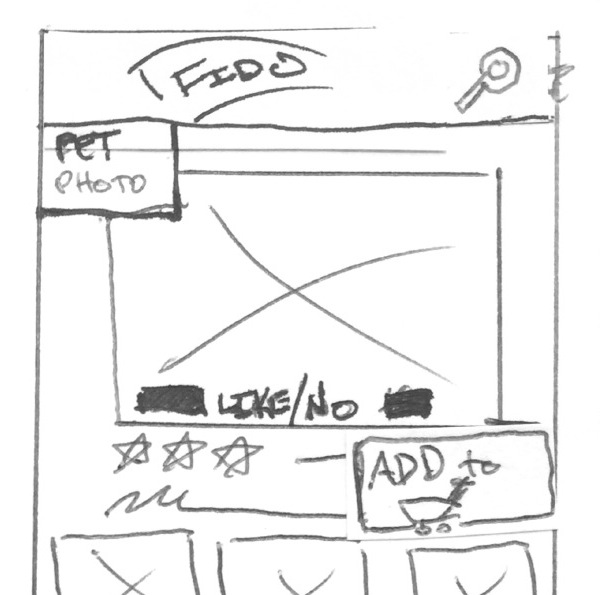 FIDO
PET
PHOTO
LIKE/NO
ADD to